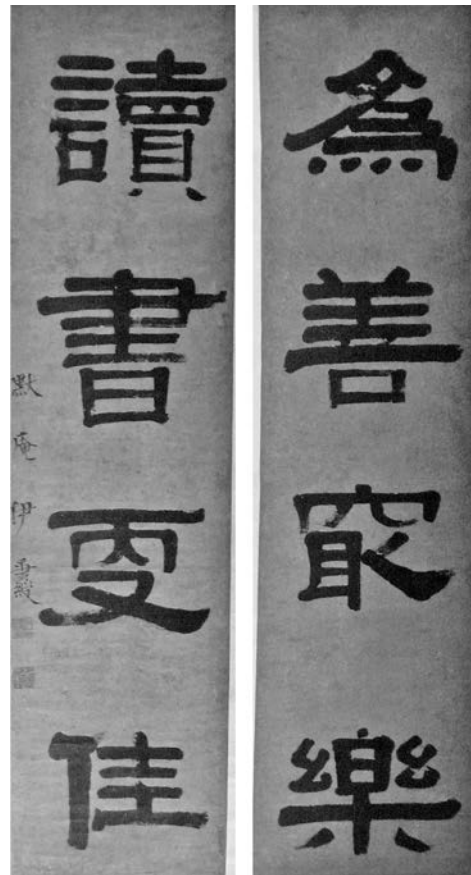 爲善最樂
讀書更佳
默庵伊秉綬